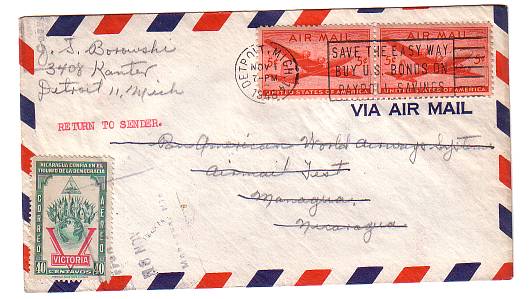 J. S. Borowski
3408 Kanter
Detroit 11, Mich
DETROIT, MICH.
NOV 1
7-PM
1946
SAVE THE EASY WAY
BUY U.S. BONDS ON
PAYROLL SAVINGS
AIR MAIL
5¢
UNITED STATES OF AMERICA
AIR MAIL
5¢
UNITED STATES OF AMERICA
VIA AIR MAIL
RETURN TO SENDER.
Pan American World Airways System
Airmail Test
Managua,
Nicaragua
NICARAGUA CONFIA EN EL
TRIUNFO DE LA DEMOCRACIA
CORREO
AEREO
VICTORIA
40
CENTAVOS
40